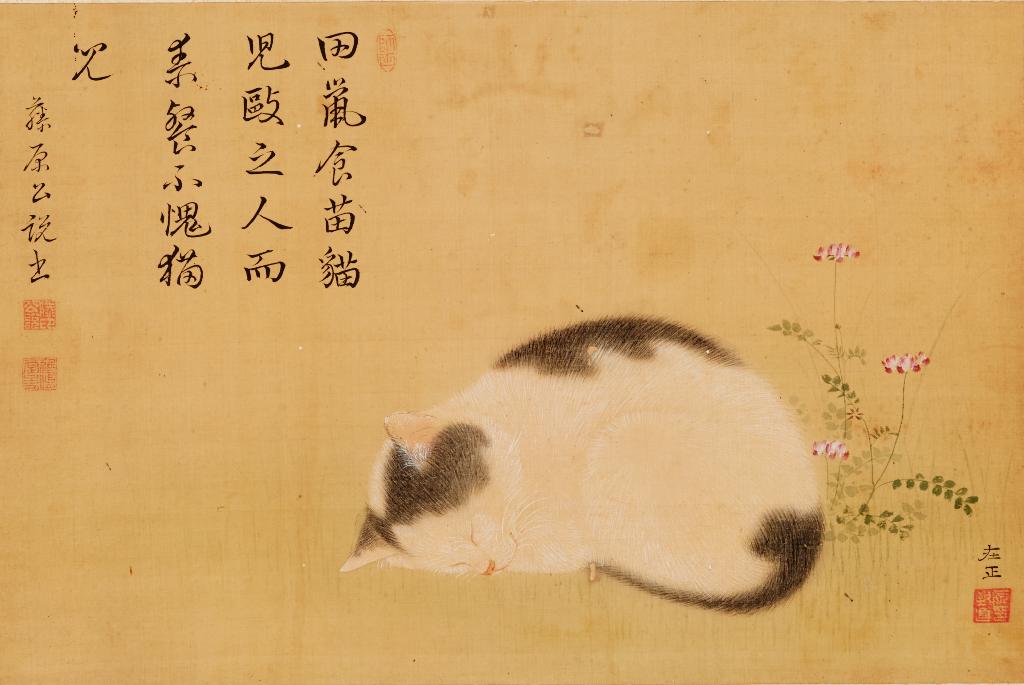 田鼡食苗貓
児敺之人而
素餐不愧猫
児
藤原公説書
在正